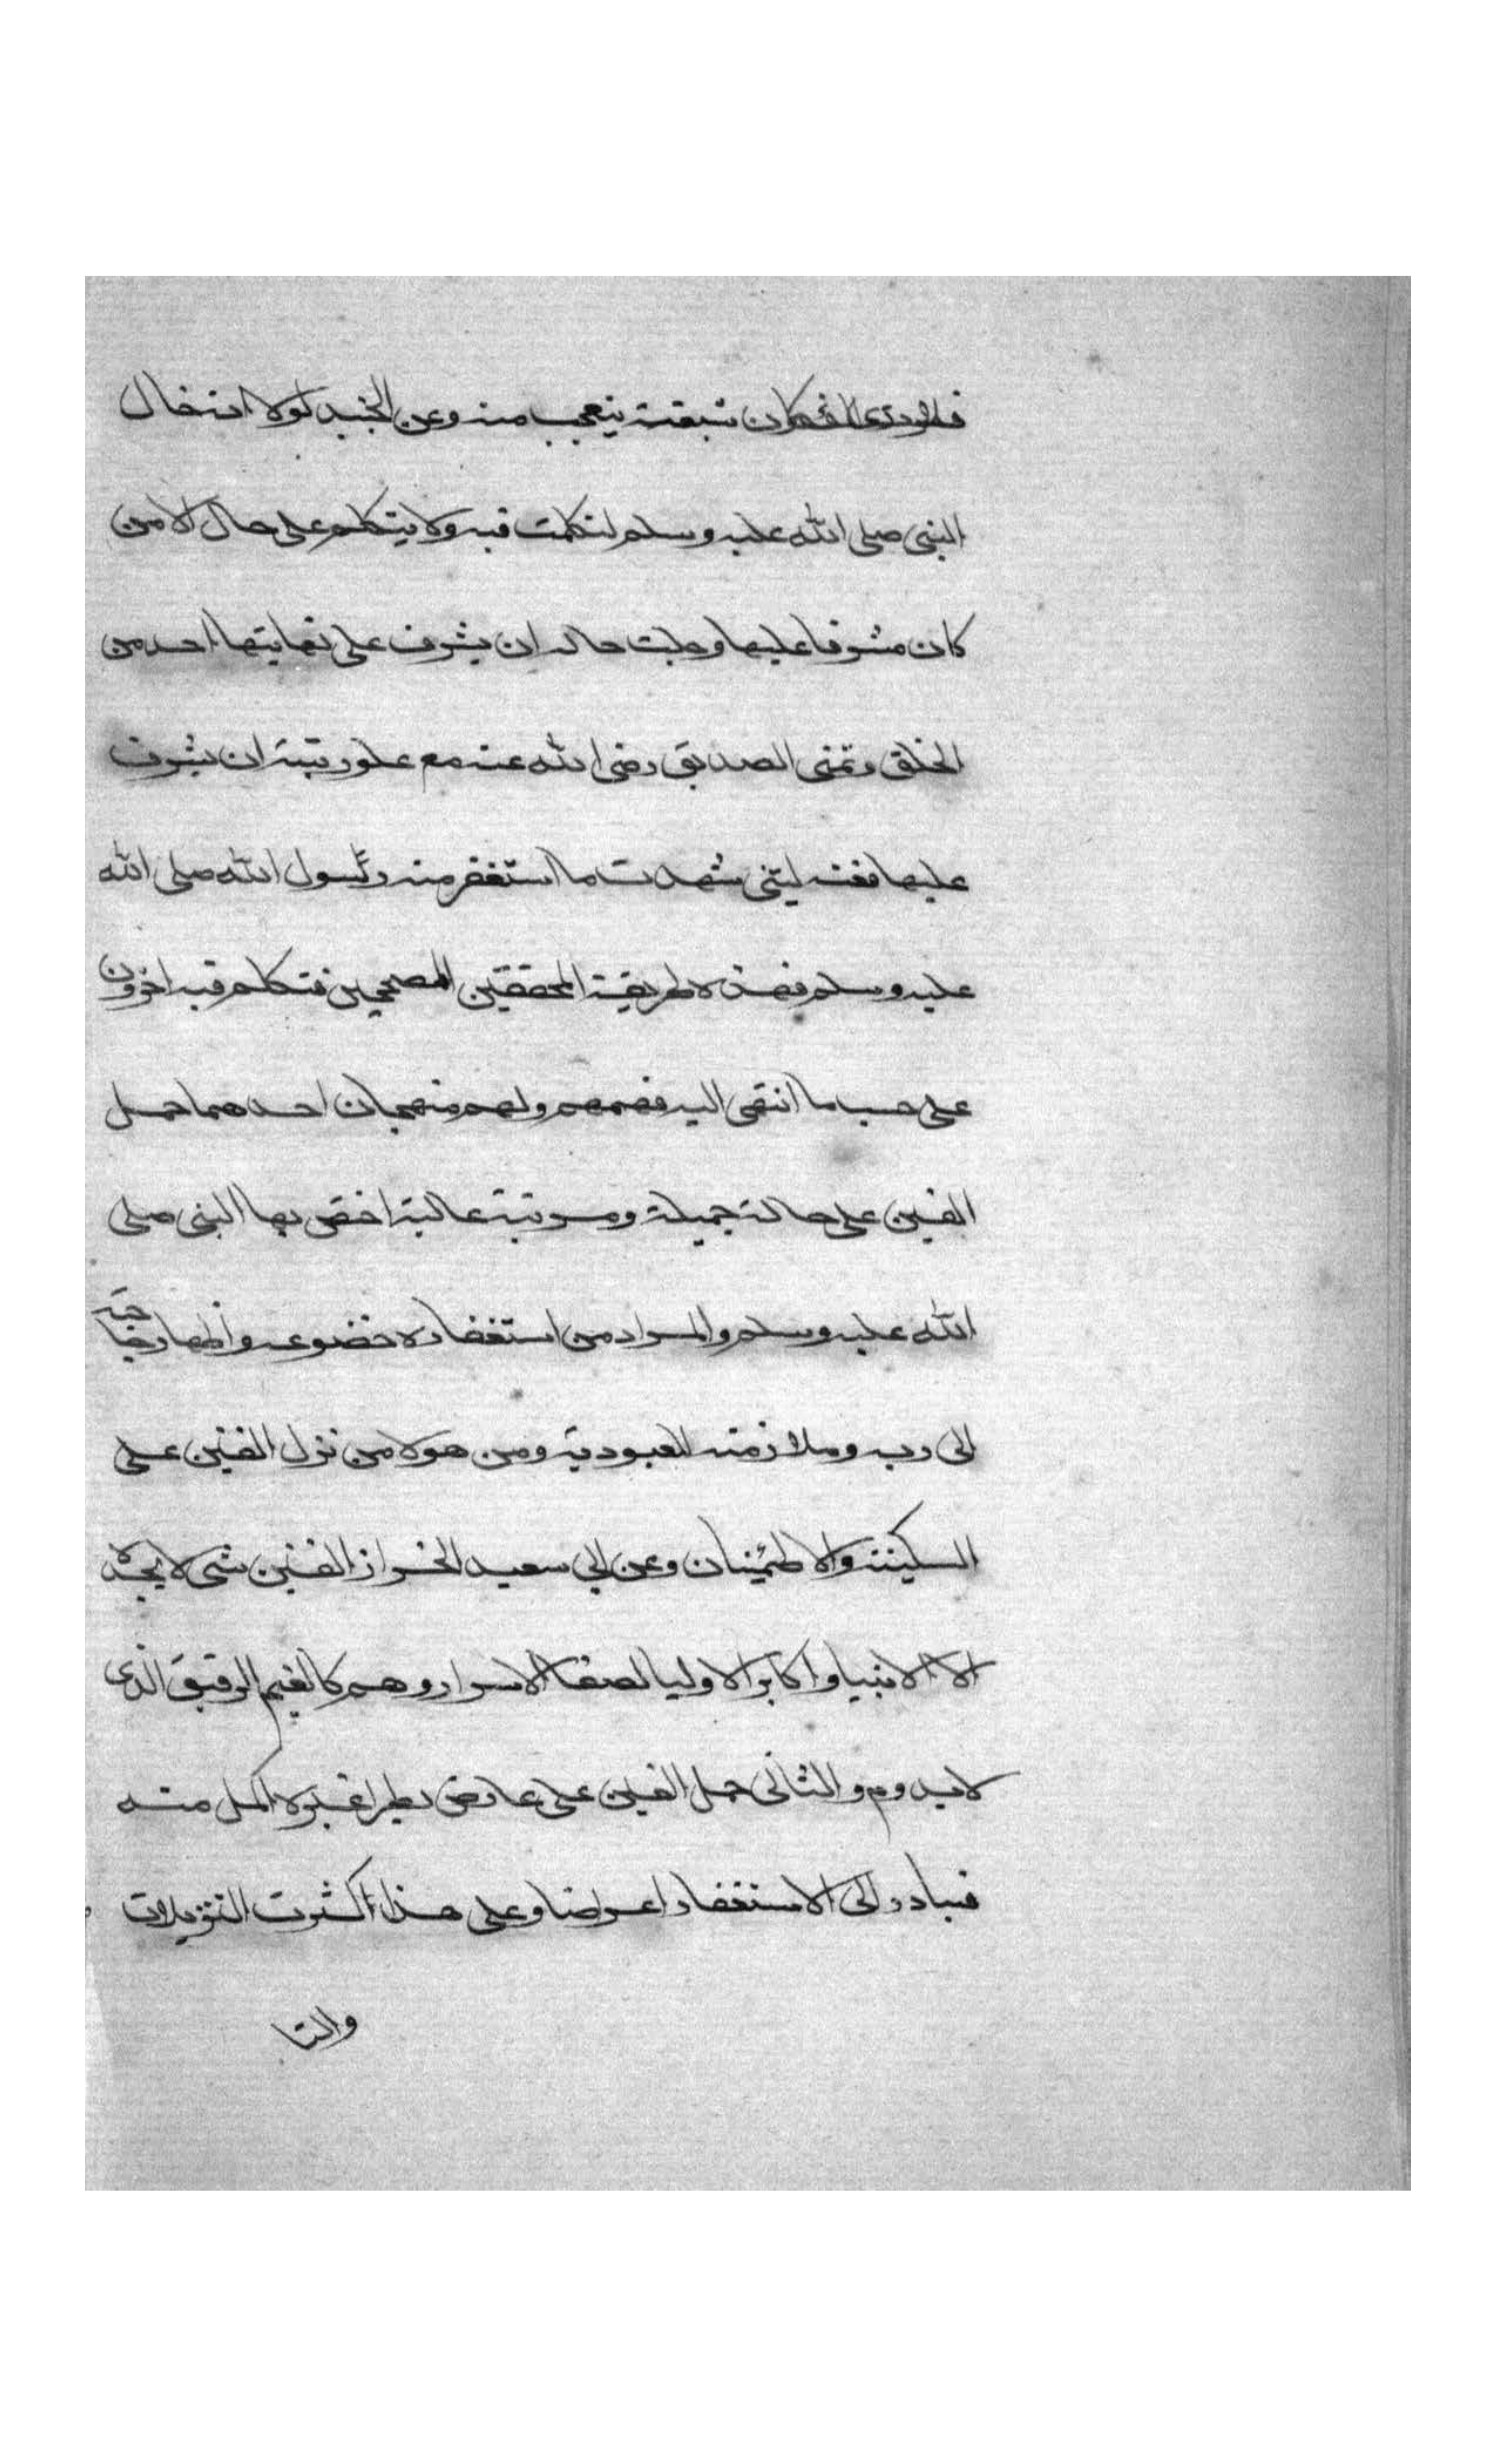 فكان شبعته يتعجب منه وعن الجنيد لولا انه حال
النبي صلى الله عليه وسلم لتكلمت فيه ولا يتكلم على حال الا من
كان مشرفا عليها وجلت حاله ان يشرف على نهايتها احد من
الخلق وتمنى الصديق رضى الله عنه مع علو رتبته ان يشرف
عليها فعنه ليتنى شهدت ما استغفر منه رسول الله صلى الله
عليه وسلم فهذه طريقة المحققين المصححين فتكلم فيه اخرون
على حسب ما انتهى اليه فهمهم ولهم منهجان احدهما حمل
الغين على حالة جميلة ومرتبة عالية اختص بها النبى صلى
الله عليه وسلم والمراد من استغفاره خضوعه واظهار حاجته
الى ربه وملازمته للعبودية ومن هولا من نزل الغين على
السكينة والاطمئنان وعن ابى سعيد الخراز الغين شى لا يجده
الا الانبيا واكابر الاوليا لصفا الاسرار وهم كالغيم الرقيق الذى
لا يدوم والثانى حمل الغين على عارض يطرا غيره اكمل منه
فيبادر الى الاستغفار اعراضا وعلى هذا كثرت التنزيلات
والتا